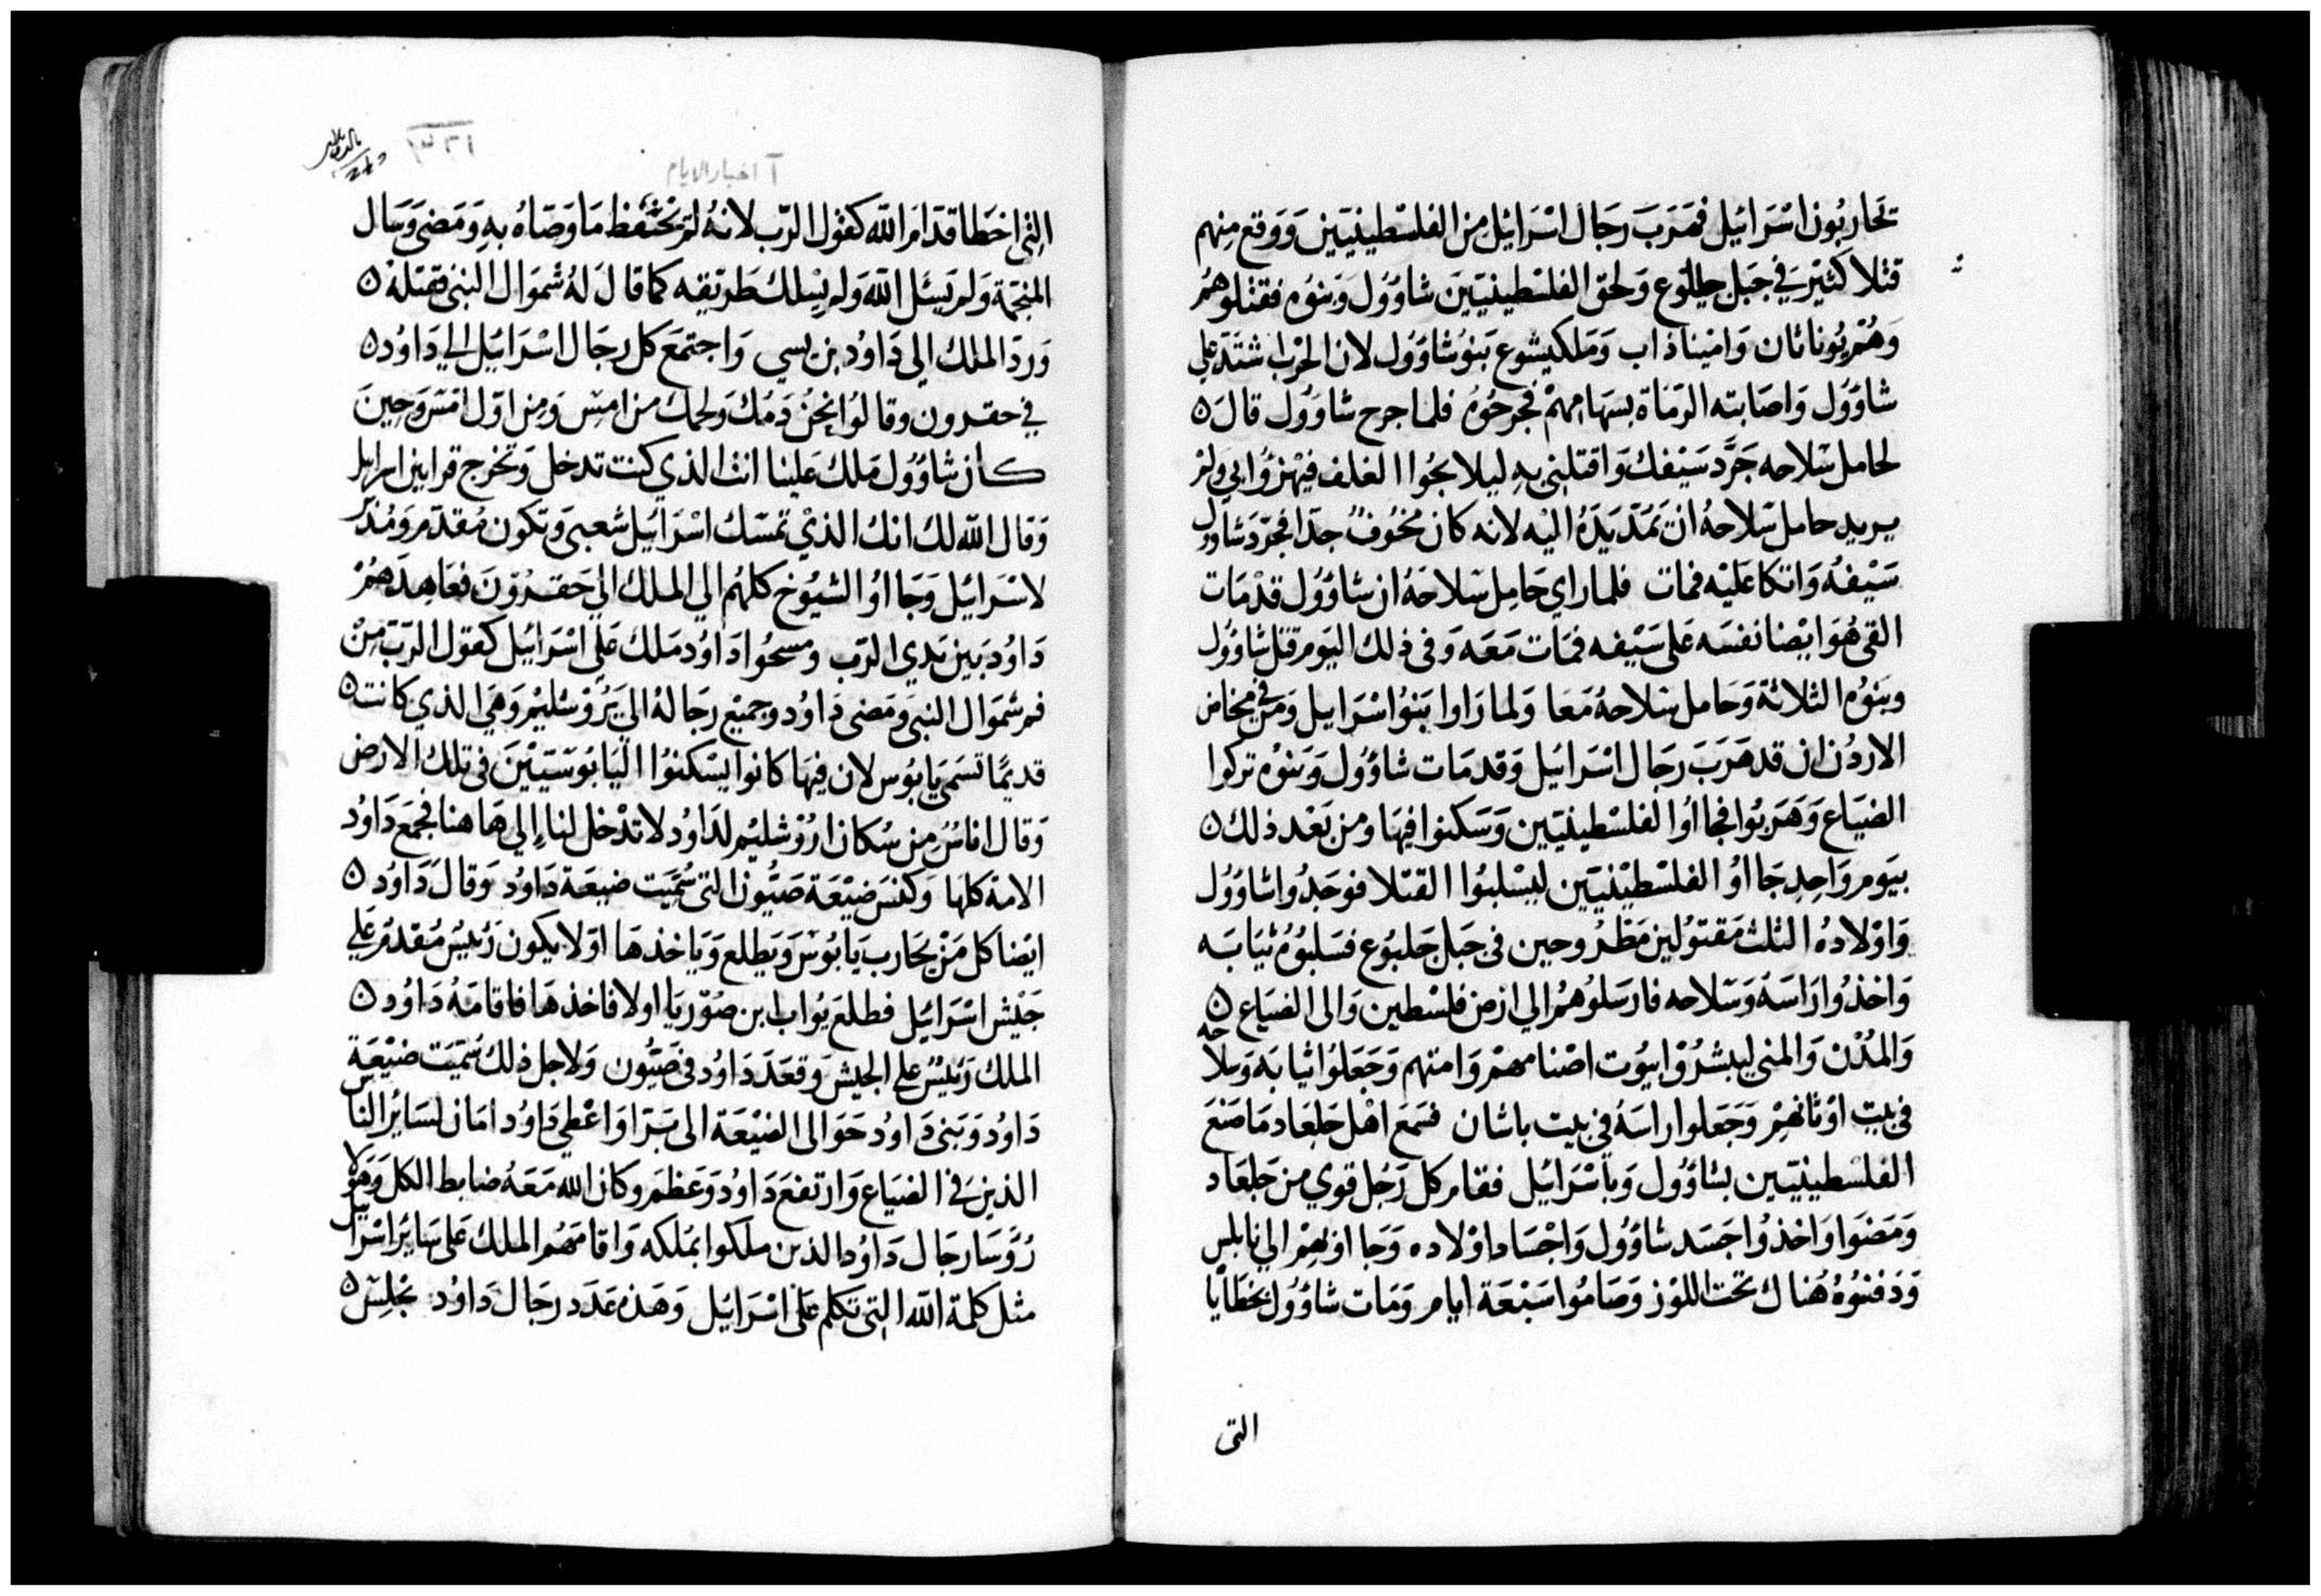 تحاربون اسْرَائيل فهَرَبَ رجَال اسْرَائيل من الفلسْطينيّين وَوَقع مِنهم
قتلا كثيرَ في جَبل جلبُوع وَلحق الفلسْطينيّينَ شاوُول وَبنوُه فقتلوهُم
وَهُمْ يُوناثان وَامْيناذاب وَمَلكيشوع بَنوُ شاوُول لان الحَرْب اشتَدّ علي
شاوُول وَاصَابته الرمَاة بسهَامِهمْ فجرحُوهُ فلما جرح شاوُول قالَ ۵
لحامل سَلاحه جَرَّد سَيْفك وَاقتلني بهِ ليلا يجُوا الغلف فيهْزؤا بي ولمْ
يريد حامل سَلاحهُ انْ يَمُدّ يَدَهُ اليْه لانه كان مخُوفٌ جدّا فجرّدَ شاوُول
سَيْفهُ وَاتكا عَليْه فمات فلما راي حَامِل سَلاحَهُ ان شاوُول قدْ مَات
القي هُوَ ايْضا نفسَه عَلي سَيْفه فمَات مَعَه وَفى ذلك اليَوم قتل شاوُول
وبَنوُه الثلاثة وَحَامل سَلاحهُ مَعَا وَلما رَاوا بَنوُا اسْرَايل وَمَن في مخاض
الاردُن ان قد هَرَبَ رجَال اسْرَائيل وَقد مَات شاوُول وَبَنوُه تركوا
الضيَاع وَهَرَبوُا فجااوُا الفلسْطينيّين وَسَكنوا فيهَا ومن بَعْد ذلك ۵
بيَوم وَاحِدٍ جَااوُ الفلسْطيْنيّين ليسْلبوُا القتلا فوَجَدُوا شاوُول
وَاوْلادهُ الثلث مَقتوُلين مَطرُوحين فى جَبل جَلبوُع فسَلبوُهُ ثيَابَه
وَاخذُوا رَاسَهُ وَسَلاحه فارسَلوُهُمُ الي ارْض فلسْطين وَالى الضيَاع ۵
وَالمدُنْ وَالمني ليبشرُوْا بيُوت اصْنامهمْ وَامتهم وَجَعَلوُا ثيابَه وَسلاحه
فى بيت اوْثانهمْ وَجَعَلوا راسَهُ فى بيت باشان فسَمعَ اهْل جَلعَاد مَا صَنعَ
الفلسْطينيّين بشاوُول وَباسْرَائيل فقام كل رَجُل قوي من جَلعَاد
وَمَضوَا وَاخذُوا جَسَد شاوُول وَاجْسَاد اوْلاده وَجَا اوْ بهمْ الي نابلس
وَدَفنوُهُ هُناك تحت اللوْز وَصَامُوا سَبْعَة ايام وَمَات شاوُول بخطَايَا
التى
آ اخبار الايام
التى اخطا قدّامَ اللّه كقول الرّب لانهُ لمْ يَحْتفظ مَا وَصّاهُ بهِ وَمَضى وَسَال
المنجّمة وَلم يَسئَل اللّه وَلم يسْلك طَريْقه كما قالَ لهُ شموَال النبى فقتلهْ ۵
وَردّ الملك الي دَاوُد بن يسي وَاجتمَعَ كل رجَال اسْرَائيل الي دَاوُد ۵
في حقرون وقالوُا نحنُ دَمُك وَلحمك من امسِ وَمِن اوّل امسَ وَحِينَ
كان شاوُول مَلك عَلينا انت الذي كنت تدخل وَتخرج قرابين اسرايل
وَقال اللّه لك انك الذيْ تمسّك اسْرَائيل شعبي وَتكون مُقدّم وَمُندَر
لاسْرَائيل وَجَااوُ الشيُوخ كلهُم الي الملك الي حَقرُوْنَ فعَاهِدَهُمْ
دَاوُد بَين يَدي الرّب ومسحُوا دَاوُد مَلك عَلي اسْرَائيل كقول الرّبّ مِنْ
فم شموَال النبي وَمَضى دَاوُد وجميْع رجَالهُ الي يَرُوْشليْم وَهيَ الذي كانت ۵
قديمًا تسَمي يَابوُس لان فيهَا كانوا يسْكنوُا اليَابُوسَيّيْنَ فى تلك الارض
وَقال اناسُ مِن سُكان ارُوْشليْم لدَاوُد لا تدْخل لنا إلي هَا هنا فجمَع دَاوُد
الامة كلهَا وَكفسَ ضيْعَة صَيُّون التى سُمّيَت ضيعَة دَاوُد وَقالَ دَاوُد ۵
ايْضا كل مَنْ يحَارب يَابُوسْ وَيَطلع وَيَاخذهَا اوّلا يكون رَئيسْ مُقدّم عَلي
جَيْش اسْرَائيل فطلعَ يُواب ابن صُوّريَا اولا فاخذهَا فاقامَهُ دَاوُد ۵
الملك رَئيسْ علي الجيش وَقعَدَ دَاوُد فى صَيُّون وَلاجل ذلك سُمّيَت ضيْعَة
دَاوُد وَبَنى دَاوُد حَوَالى الضيْعَة الى بَرّا وَاعْطي دَاوُد امَان لسَائر الناس
الذين فى الضيَاع وَارتفعَ دَاوُد وَعَظم وكان اللّه مَعَهُ ضابط الكل وَهَولا
رُؤَسَا رجَال دَاوُد الذين ملكوا بمُلكه وَاقامَهُم الملك عَلى سَائر اسْرَائيل
مثل كلمَة اللّه التى تكلم عَلى اسْرَائيل وَهَذه عَدَد رجَال دَاوُد يجْلِسْ ۵